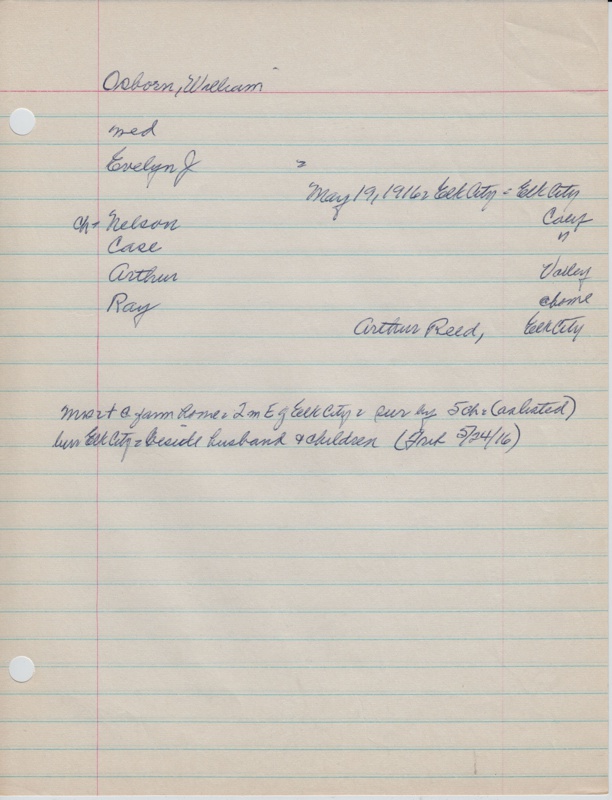 Osborn, William
med
Evelyn J =
May 19, 1916 = Elk City = Elk City
Ch + Nelson Calif
Case "
Arthur Valley
Ray home
Arthur Reed, Elk City
farm home = 2 m E of Elk City = sur by 5 ch = (as listed)
bur Elk City = beside husband & children (Trib 5/24/16)